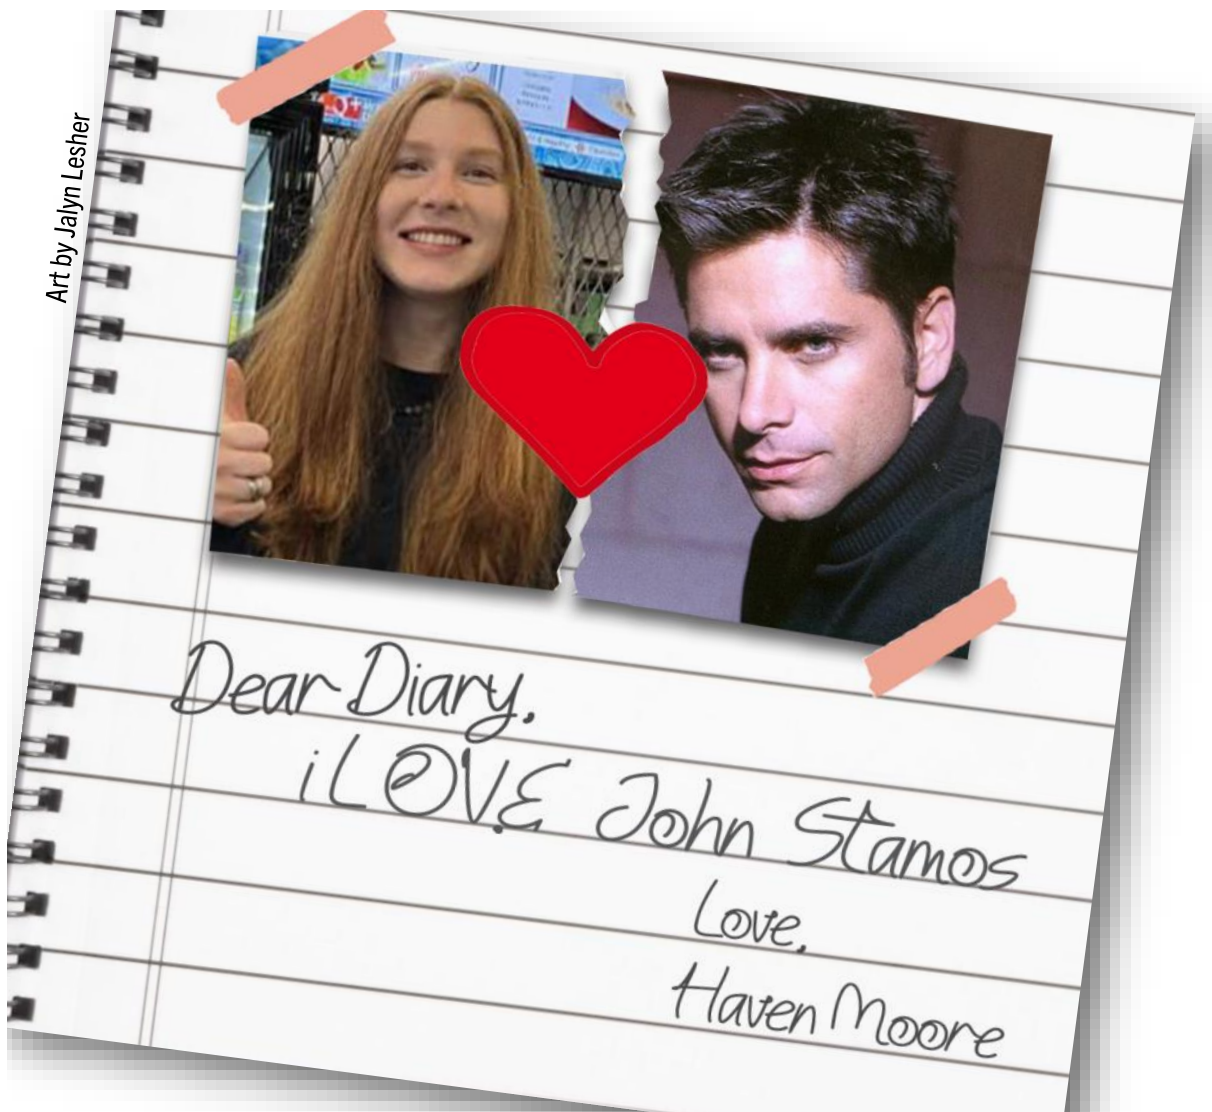 Art by Jalyn Lesher
Dear Diary,
i LOVE John Stamos
Love,
Haven Moore